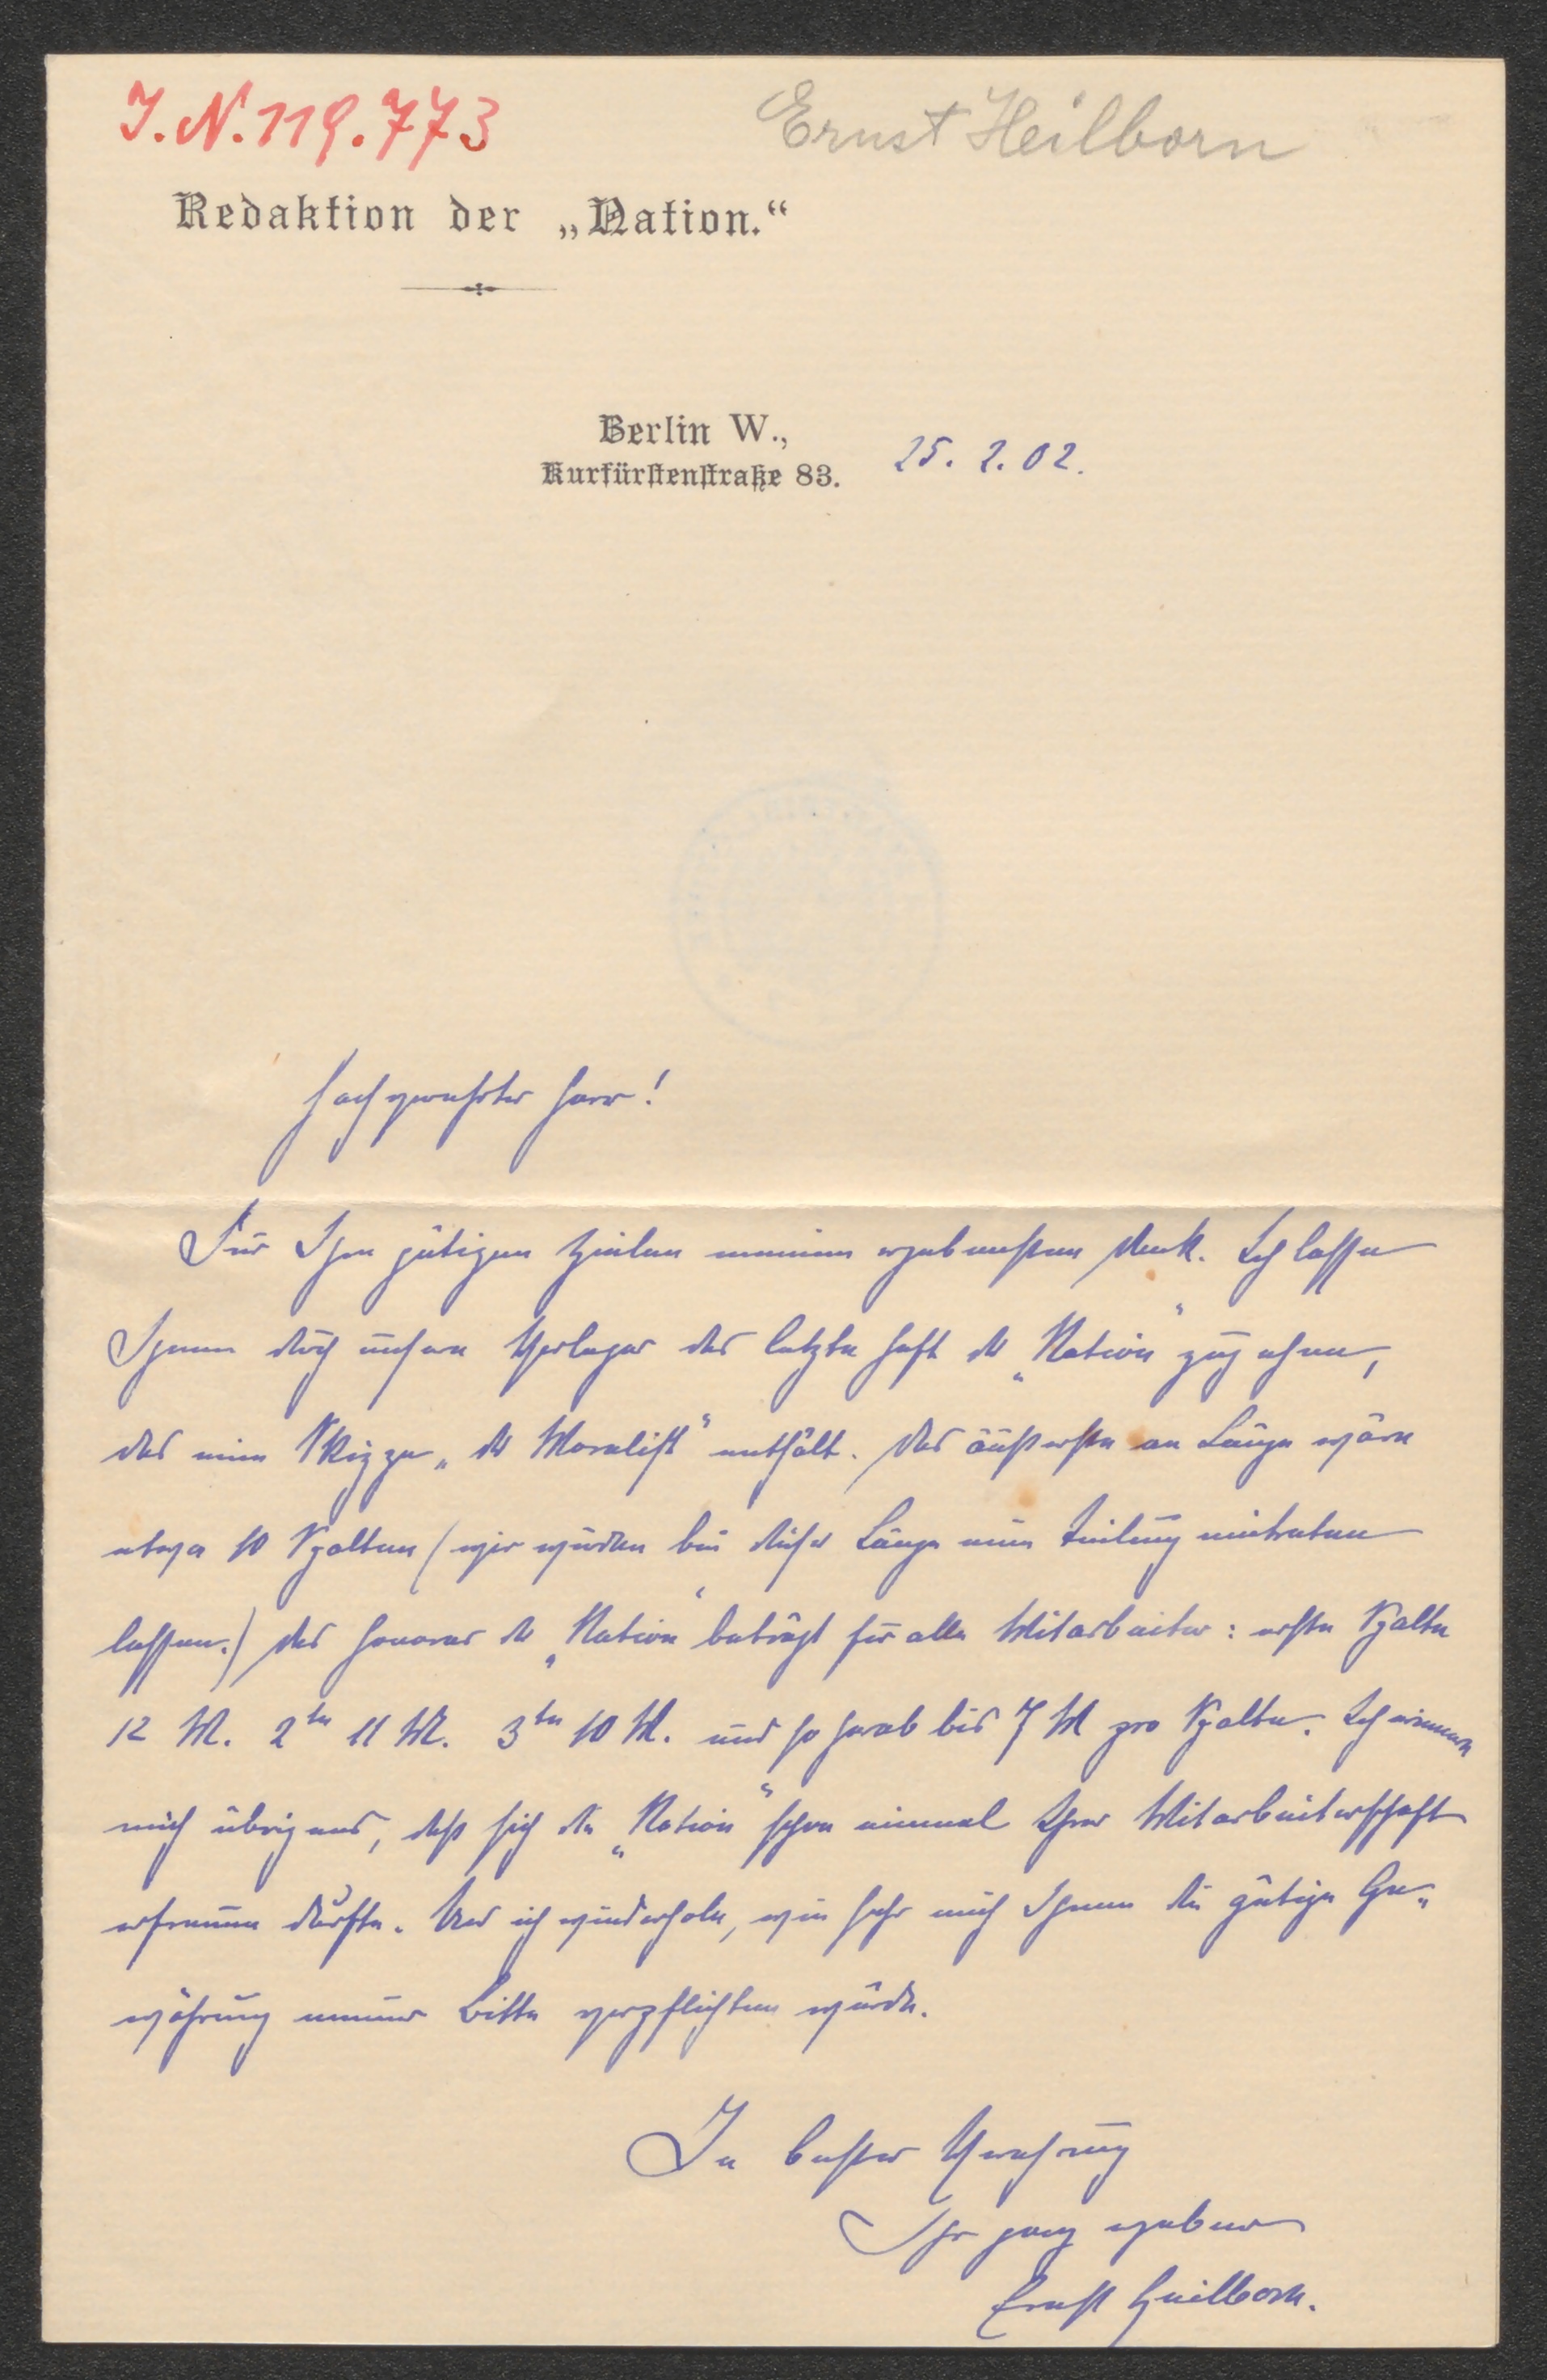 J.N. 119.773
Ernst Heilborn
Redaktion der „Nation.“
Berlin W.,
Kurfürstenstraße 83.
25. 2. 02.
Hochgeehrter Herr!
Für Ihre gütigen Zeilen meinen ergebensten Dank. Ich lasse
Ihnen durch unseren Verleger das letzte Heft der „Nation“ zugehen,
das eine Skizze „Der Moralist“ enthält. Das äußerste an Länge wäre
etwa 10 Spalten (wir würden bei dieser Länge eine Teilung eintreten
lassen.) Das Honorar der „Nation“ beträgt für alle Mitarbeiter: erste Spalte
12 M. 2te 11 M. 3te 10 M. und so herab bis 7 M pro Spalte. Ich erinnere
mich übrigens, daß sich die „Nation“ schon einmal Ihrer Mitarbeiterschaft
erfreuen durfte. Und ich wiederhole, wie sehr mich Ihnen die gütige Ge-
währung meiner Bitte verpflichten würde.
In bester Verehrung
Ihr ganz ergebener
Ernst Heilborn.